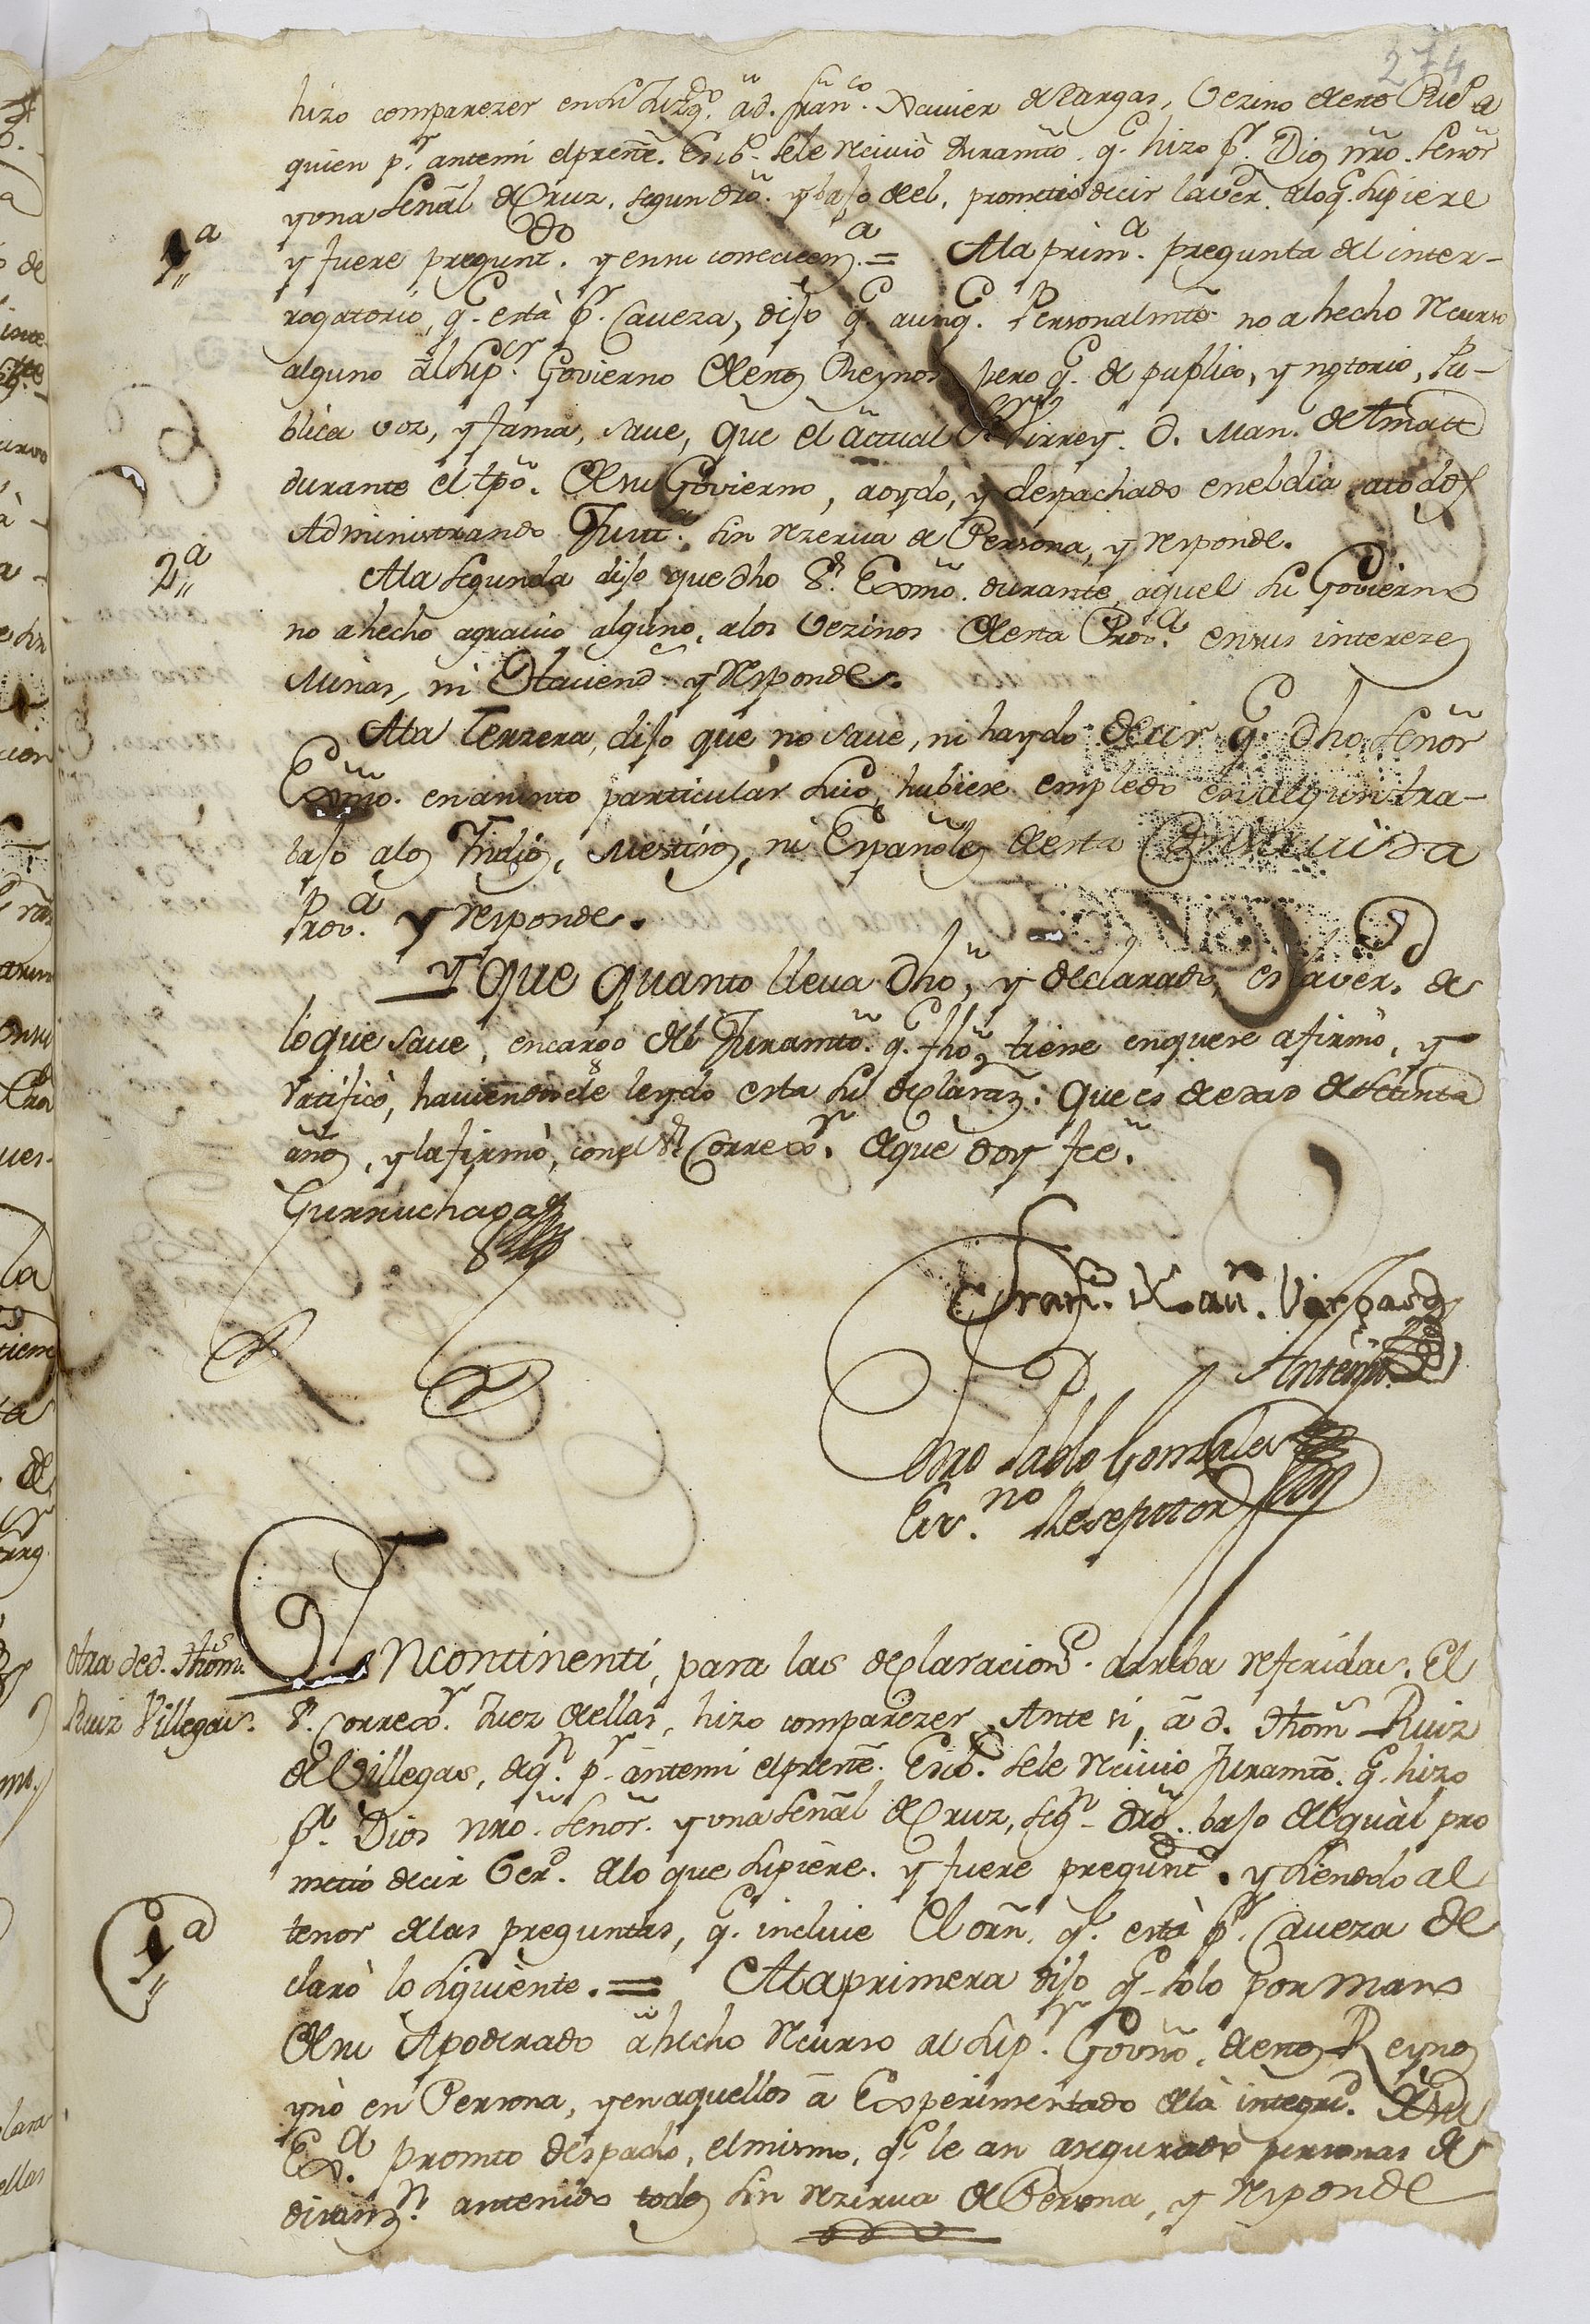 274
hizo comparezer en su Juzgdo. â d. Franco. Xavier de Vargas, Vezino de este Pueo. a
quien pr. antemi el presnte. Escbo. se le recivió Juramto. qe. hizo pr. Dios nro. Señor
y una Señal de Cruz, segun dro. y bajo de el, prometió decir la ver. de lo qe. supiere
1a
y fuere pregunt.do y en su conseqena. = A la prima. pregunta del inter-
rogatorio, qe. está pr. Caveza, dijo qe. aunqe. Personalmte. no a hecho recurso
alguno âl Supor. Govierno de estos Reynos, pero qe. de publico, y notorio, Pu-
blica voz, y fama, save, que el âctual Sr. Virrey. D. Man. de Amatt
durante el tpo. de su Govierno, a oydo, y despachado en el dia, a todos
Administrando Justa. sin rezerva de Persona, y responde.
2a
A la segunda dijo que dho Sr. Exmo. durante aquel su Govierno
no a hecho agravio alguno, a los Vezinos de esta Prova. en sus interezes
Minas, ni Haciend.s y responde.
A la Terzera, dijo que no save, ni ha oydo decir qe. dho Señor
Exmo. en asunto particular suio, hubiere empleado en algun tra-
bajo a los Indios, Mestisos, ni Españoles de esta
Prova. y responde.
Y Que quanto lleva dho, y declarado, es la verd. de
lo que save, en cargo del Juramto. qe. fho tiene en que se afirmó, y
ratificò, haviendosele leydo esta su declaraz.: Que es de edad de setenta
años, y la firmó, con el Sr. Correxor. de que doy fee.
Gurruchaga
Franco. Xavr. Vargas
Antemi
Pablo Gonzales
Esc.no Reseptor
Otra de d. Thoms.
Ruiz Villegas.
INcontinenti, para las declaracions. arriba referidas. El
Sr. Correxor. Juez de ellas, hizo comparezer Ante si, â d. Thoms Ruiz
de Villegas, de qn. pr. antemi el presnte. Escbo. se le recivio Juramto. qe. hizo
pr. Dios nro. Señor. y una Señal de Cruz, segn. dro. bajo del quàl pro
metió decir Verd. de lo que supiere. y fuere pregunt.do y siendolo al
1a
tenor de las preguntas, qe. incluie el orn. qe. està pr. Caveza de
clarò lo siguiente. = A la primera dijo qe. solo por mano
de su Apoderado â hecho recurso al Supr. Govno. de estos Reynos
y nò en Persona, y en aquellos â Experimentado de la integrid. de su
Exa. promto despacho, el mismo, qe. le an asegurado personas de
distinzn. an tenido todos sin rezerva de Persona, y responde